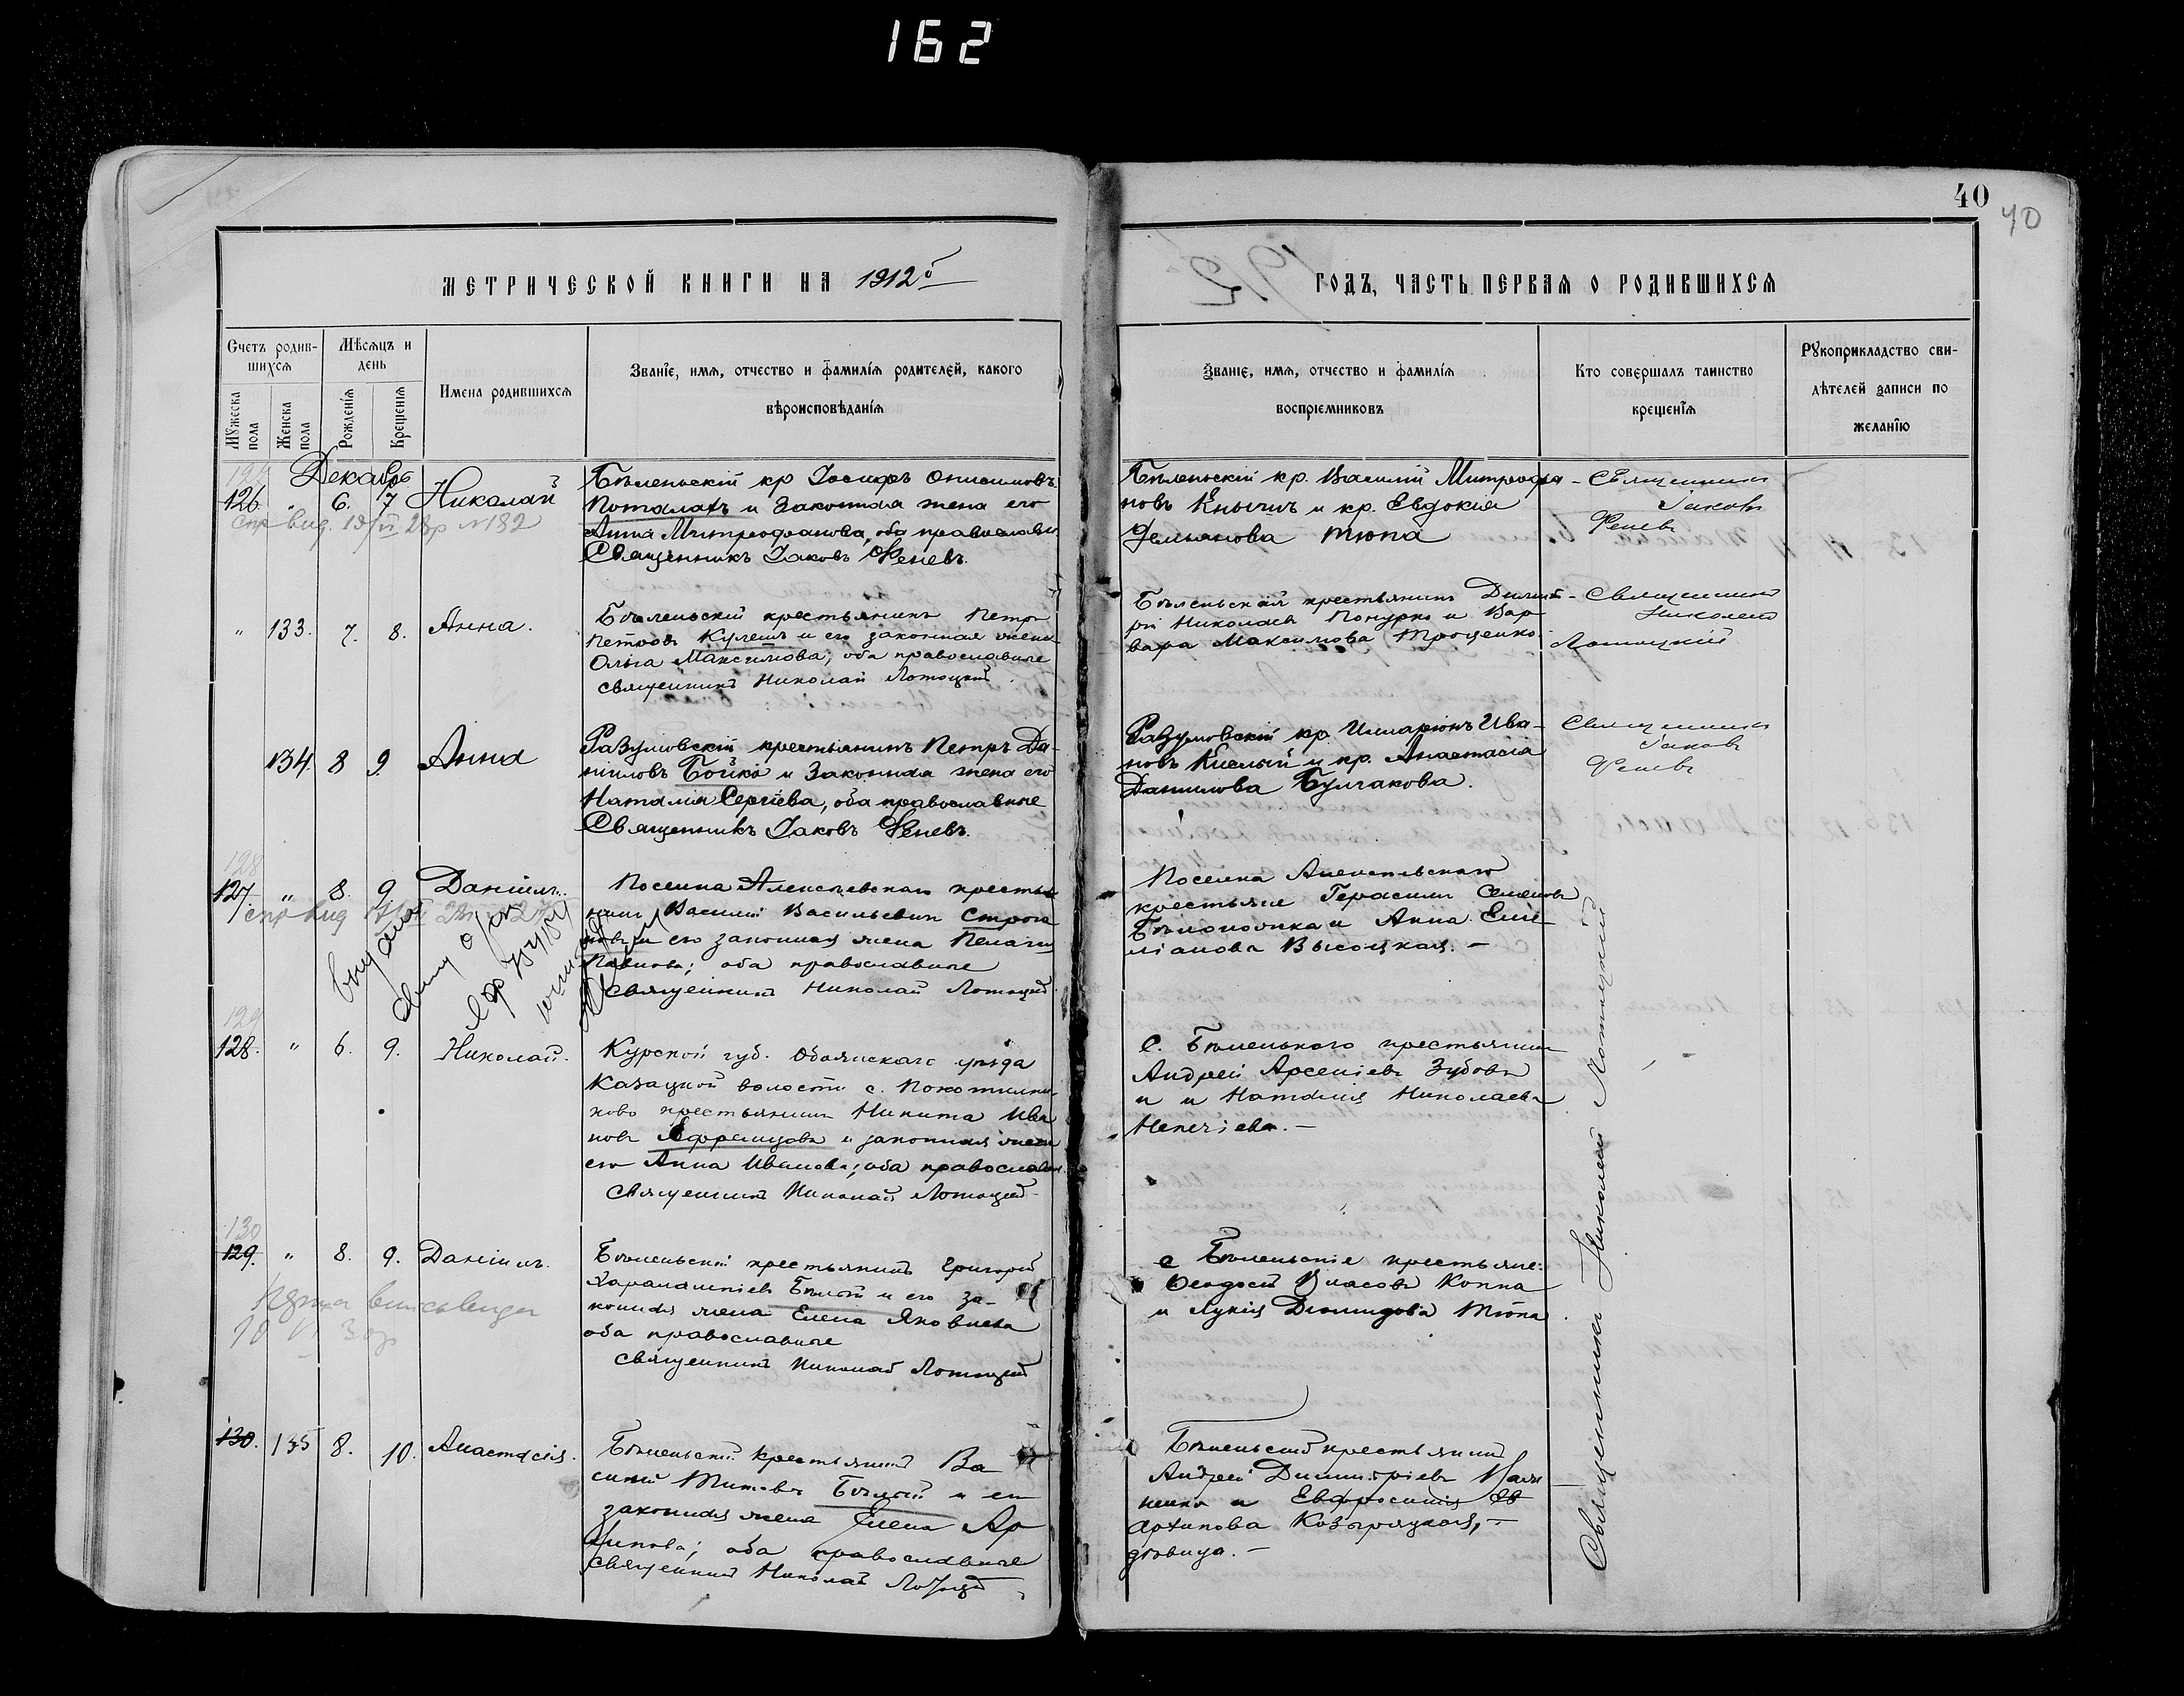 162
40
40
МЕТРИЧЕСКОЙ КНИГИ НА 1912й
ГОДЪ, ЧАСТЬ ПЕРВАЯ О РОДИВШИХСЯ
Счетъ родив-
шихся
Мѣсяцъ и
день
Мужеска
пола
Женска
пола
Рожденія
Крещенія
Имена родившихся
Званіе, имя, отчество и фамилія родителей, какого
вѣроисповѣданія
Званіе, имя, отчество и фамилія
воспріемниковъ
Кто совершалъ таинство
крещенія
Рукоприкладство сви-
дѣтелей записи по
желанію
Декабрь
126. " 6. 7 Николай
Бѣленьскій кр Іосифъ Онисимовъ
Поталахъ и Законная жена его
Анна Митрофанова, оба православн.
Священникъ Іаковъ Феневъ.
Бѣленьскій кр. Василій Митрофа-
новъ Кнышъ и кр. Евдокія
Демьянова Тюпа
Священникъ
Іаковъ
Феневъ
" 133. 7. 8. Анна.
Бѣленьскій крестьянинъ Петръ
Петровъ Кулешъ и его законная жена
Ольга Максимова; оба православные
священникъ Николай Лотоцкій.
Бѣленьскій крестьянинъ Димит-
рій Николаевъ Понурко и Вар-
вара Максимова Троценко
Священникъ
Николай
Лотоцкій
134. 8 9. Анна
Разумовскій крестьянинъ Петръ Да-
ніиловъ Бойко и Законная жена его
Наталія Сергіева, оба православные
Священникъ Іаковъ Феневъ.
Разумовскій кр. Иларіонъ Ива-
новъ Кислый и кр. Анастасія
Данилова Булгакова.
Священникъ
Іаковъ
Феневъ
128
127. " 8. 9 Даніилъ.
Поселка Алексѣевскаго крестья
нинъ Василій Васильевъ Строга
новъ и его законная жена Пелагія
Павлова; оба православные
священникъ Николай Лотоцкій.
Поселка Алексѣевскаго
крестьяне Герасимъ Семеновъ
и Анна Еми
ліанова Высоцкая. —
129
128. " 6. 9. Николай.
Курской губ. Обоянскаго уѣзда
Казацкой волости с.
ково крестьянинъ Никита Ива
новъ Ефремцовъ и законная жена
его Анна Иванова; оба православн.
священникъ Николай Лотоцкій
С. Бѣленькаго крестьянинъ
Андрей Арсеніевъ Зубовъ
и и Наталія Николаева
130
129. " 8. 9. Даніилъ.
Бѣленьскій крестьянинъ Григорій
Харалампіевъ Бѣлый и его за-
конная жена Елена Яковлева
оба православные
священникъ Николай Лотоцкій
с Бѣленьскіе крестьяне:
Ѳеодосій Власовъ Коппа
и Лукія Діомидова Тюпа.
130. 135 8. 10. Анастасія.
Бѣленьскій крестьянинъ Ва
силій Титовъ Бѣлый и его
законная жена Елена Ар
хипова; оба православные
священникъ Николай Лотоцкій
Бѣленьскій крестьянинъ
Андрей Димитріевъ
и Евфросинія
Архипова Козыряцкая, —
дѣвица. —
Священникъ Николай Лотоцкій